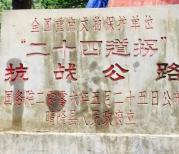 全国重点文物保护单位
“二十四道拐”
抗战公路
国务院二零零六年五月二十五日公布
晴隆县人民政府立